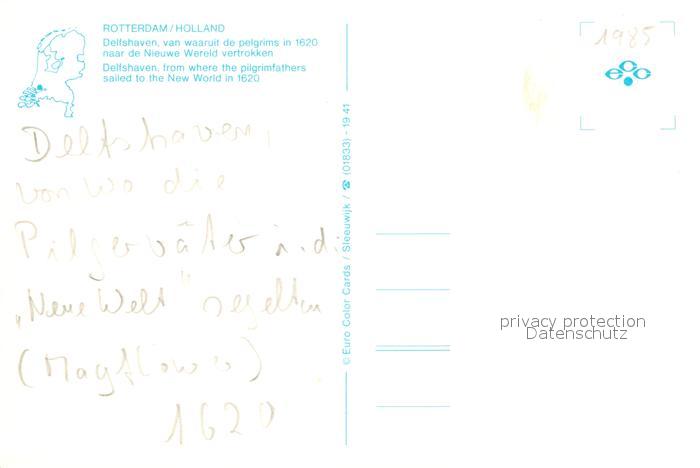 ROTTERDAM/HOLLAND
Delfshaven, van waaruit de pelgrims in 1620
naar de Nieuwe Wereld vertrokken
Delfshaven, from where the pilgrimfathers
sailed to the New World in 1620
Delfshaven,
von wo die
Pilgerväter i. d.
„Neue Welt" segelten
(Mayflower)
1620
© Euro Color Cards / Sleeuwijk / ☎ (01833) - 19 41
1985
ecc
privacy protection
Datenschutz